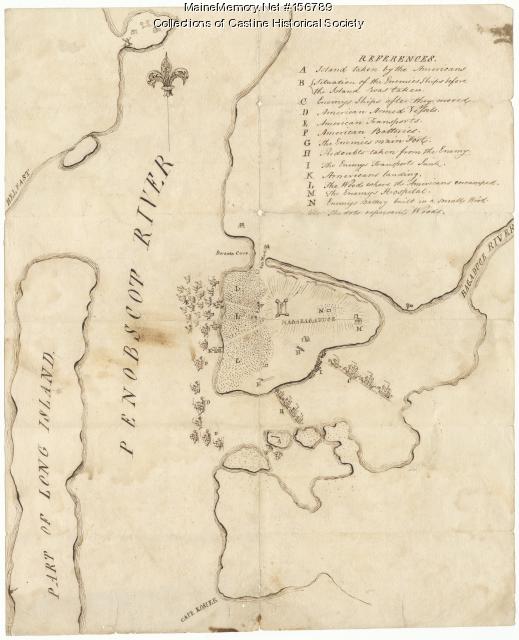 MaineMemory.Net #156789
Collections of Castine Historical Society
REFERENCES.
A Island taken by the Americans
B Situation of the Enemies Ships before
the Island was taken.
C Enemys Ships after they moved
D American Armed Vessels.
E American Transports.
F American Batteries.
G The Enemies main Fort.
H Redoubts taken from the Enemy.
I The Enemys Transports Sunk.
K Americans landing.
L The Wood where the Americans encamped.
M The Enemys Hospital.
N Enemys Battery built in a small Wood
The dots represents Woods.
BELFAST
PENOBSCOT RIVER
BAGADUCE RIVER
Perants Cove
MAGABAGADUCE
PART OF LONG ISLAND
CAPE ROSIER